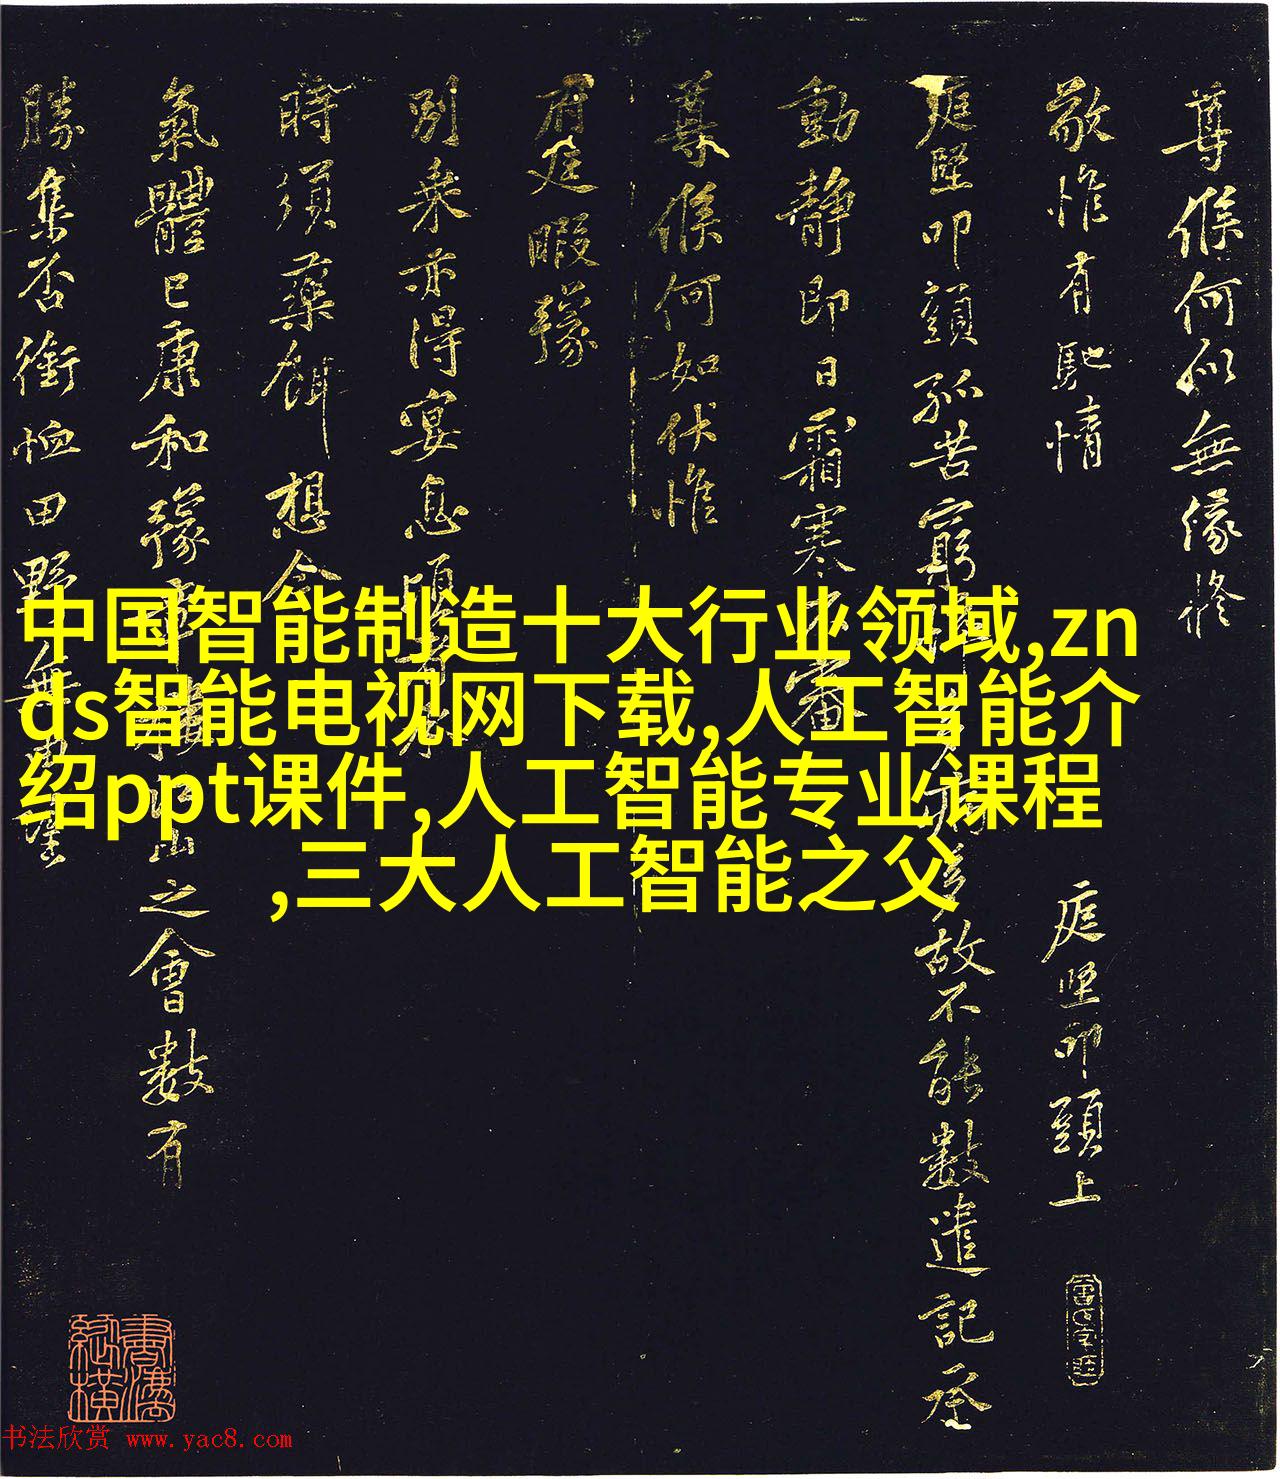 中国智能制造十大行业领域,zn
ds智能电视网下载,人工智能介
绍ppt课件,人工智能专业课程
,三大人工智能之父
尊候何似無緣修
敬惟有馳情
庭堅叩頭上
庭堅叩頭孤苦窮
故不能數遣記承
動靜即日霜寒不審
尊候何如伏惟
府廷暇豫
別乘亦得宴息
時須藥餌想念
氣體已康和豫
山之會數有
勝集否銜恤田野無
書法縱橫
书法欣赏 www.yac8.com